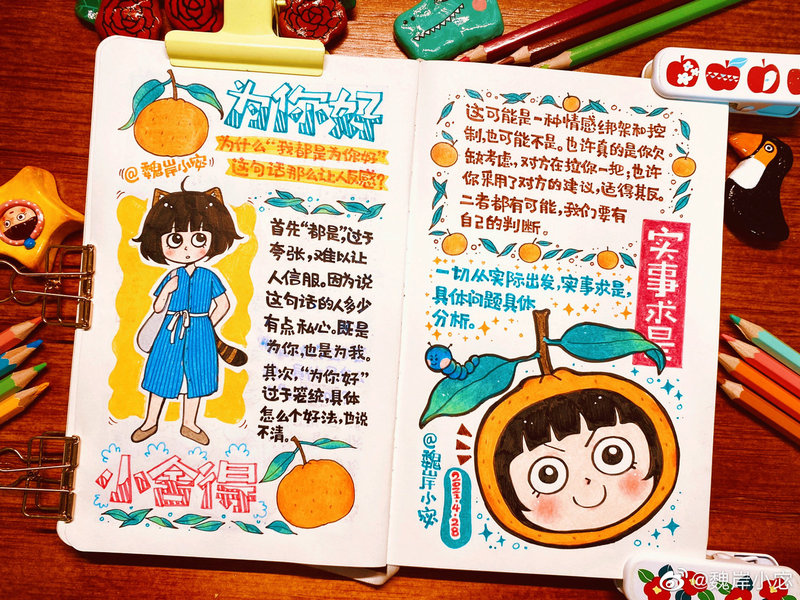 为你好
为什么“我都是为你好”
这句话那么让人反感?
@魏岸小宓
首先“都是”,过于
夸张,难以让
人信服。因为说
这句话的人多少
有点私心。既是
为你,也是为我。
其次,“为你好”
过于笼统,具体
怎么个好法,也说
不清。
小舍得
这可能是一种情感绑架和控
制,也可能不是。也许真的是你欠
缺考虑,对方在拉你一把;也许
你采用了对方的建议,适得其反。
二者都有可能,我们要有
自己的判断。
实事求是
一切从实际出发,实事求是,
具体问题具体
分析。
@魏岸小宓
2021.4.28
@魏岸小宓